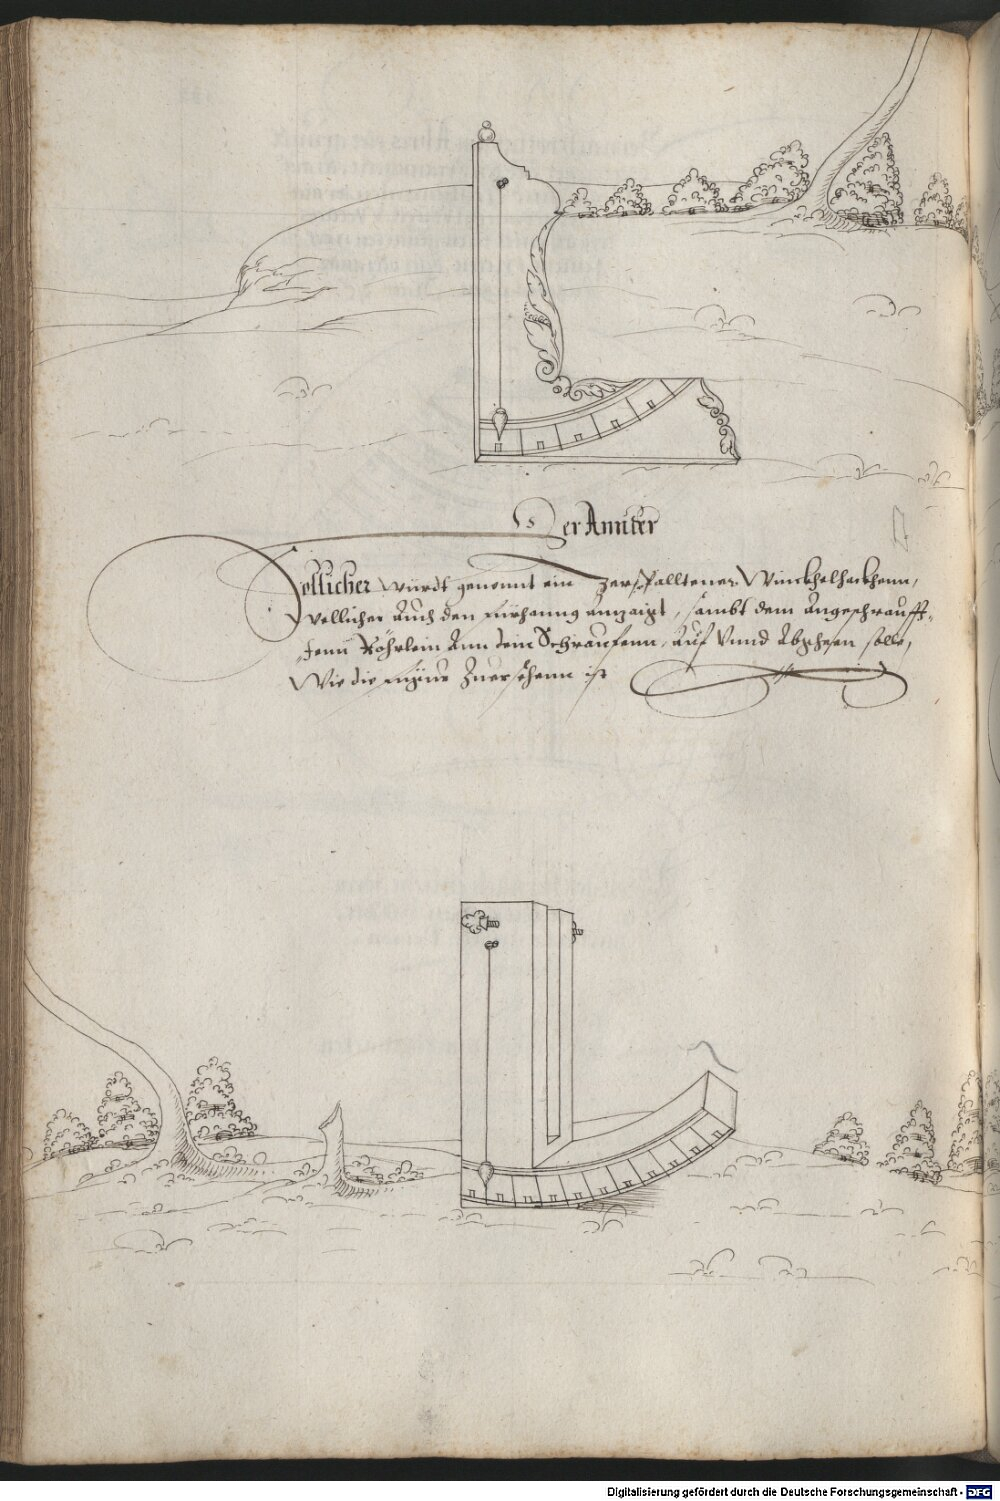 Der Annder
Wellicher würdt genennt ein Zerspalltener Winckhelhackhenn,
Wellicher Auch den fürhanng anzaigt, sambt dem Angeschraufft-
tenn Röhrlein Ann dem Schraufenn, Auf Vnnd Abgehen solle,
Wie die figur Zuersehenn ist
Digitalisierung gefördert durch die Deutsche Forschungsgemeinschaft - DFG